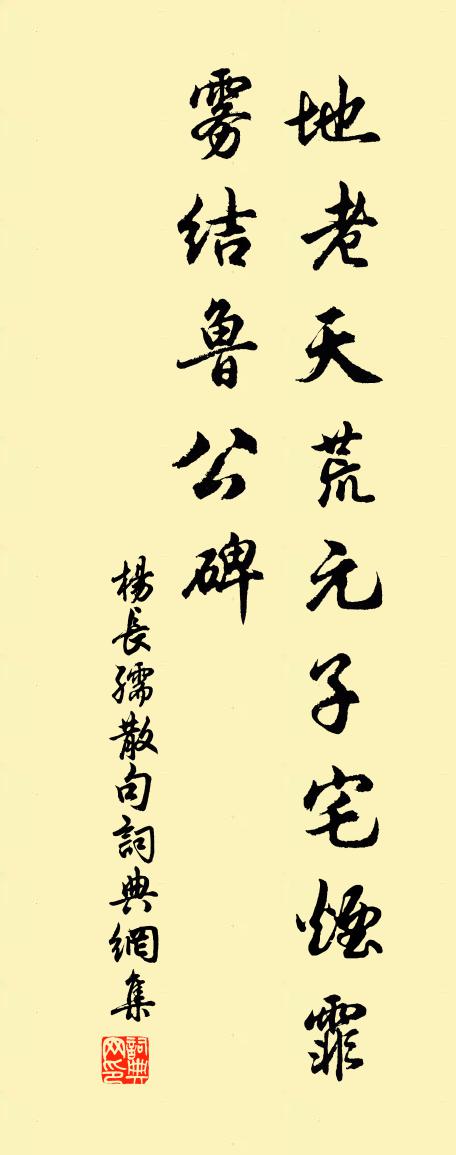 地老天荒元子宅煙霏
雾结鲁公碑
楊長孺散句詞典網集
詞典网印